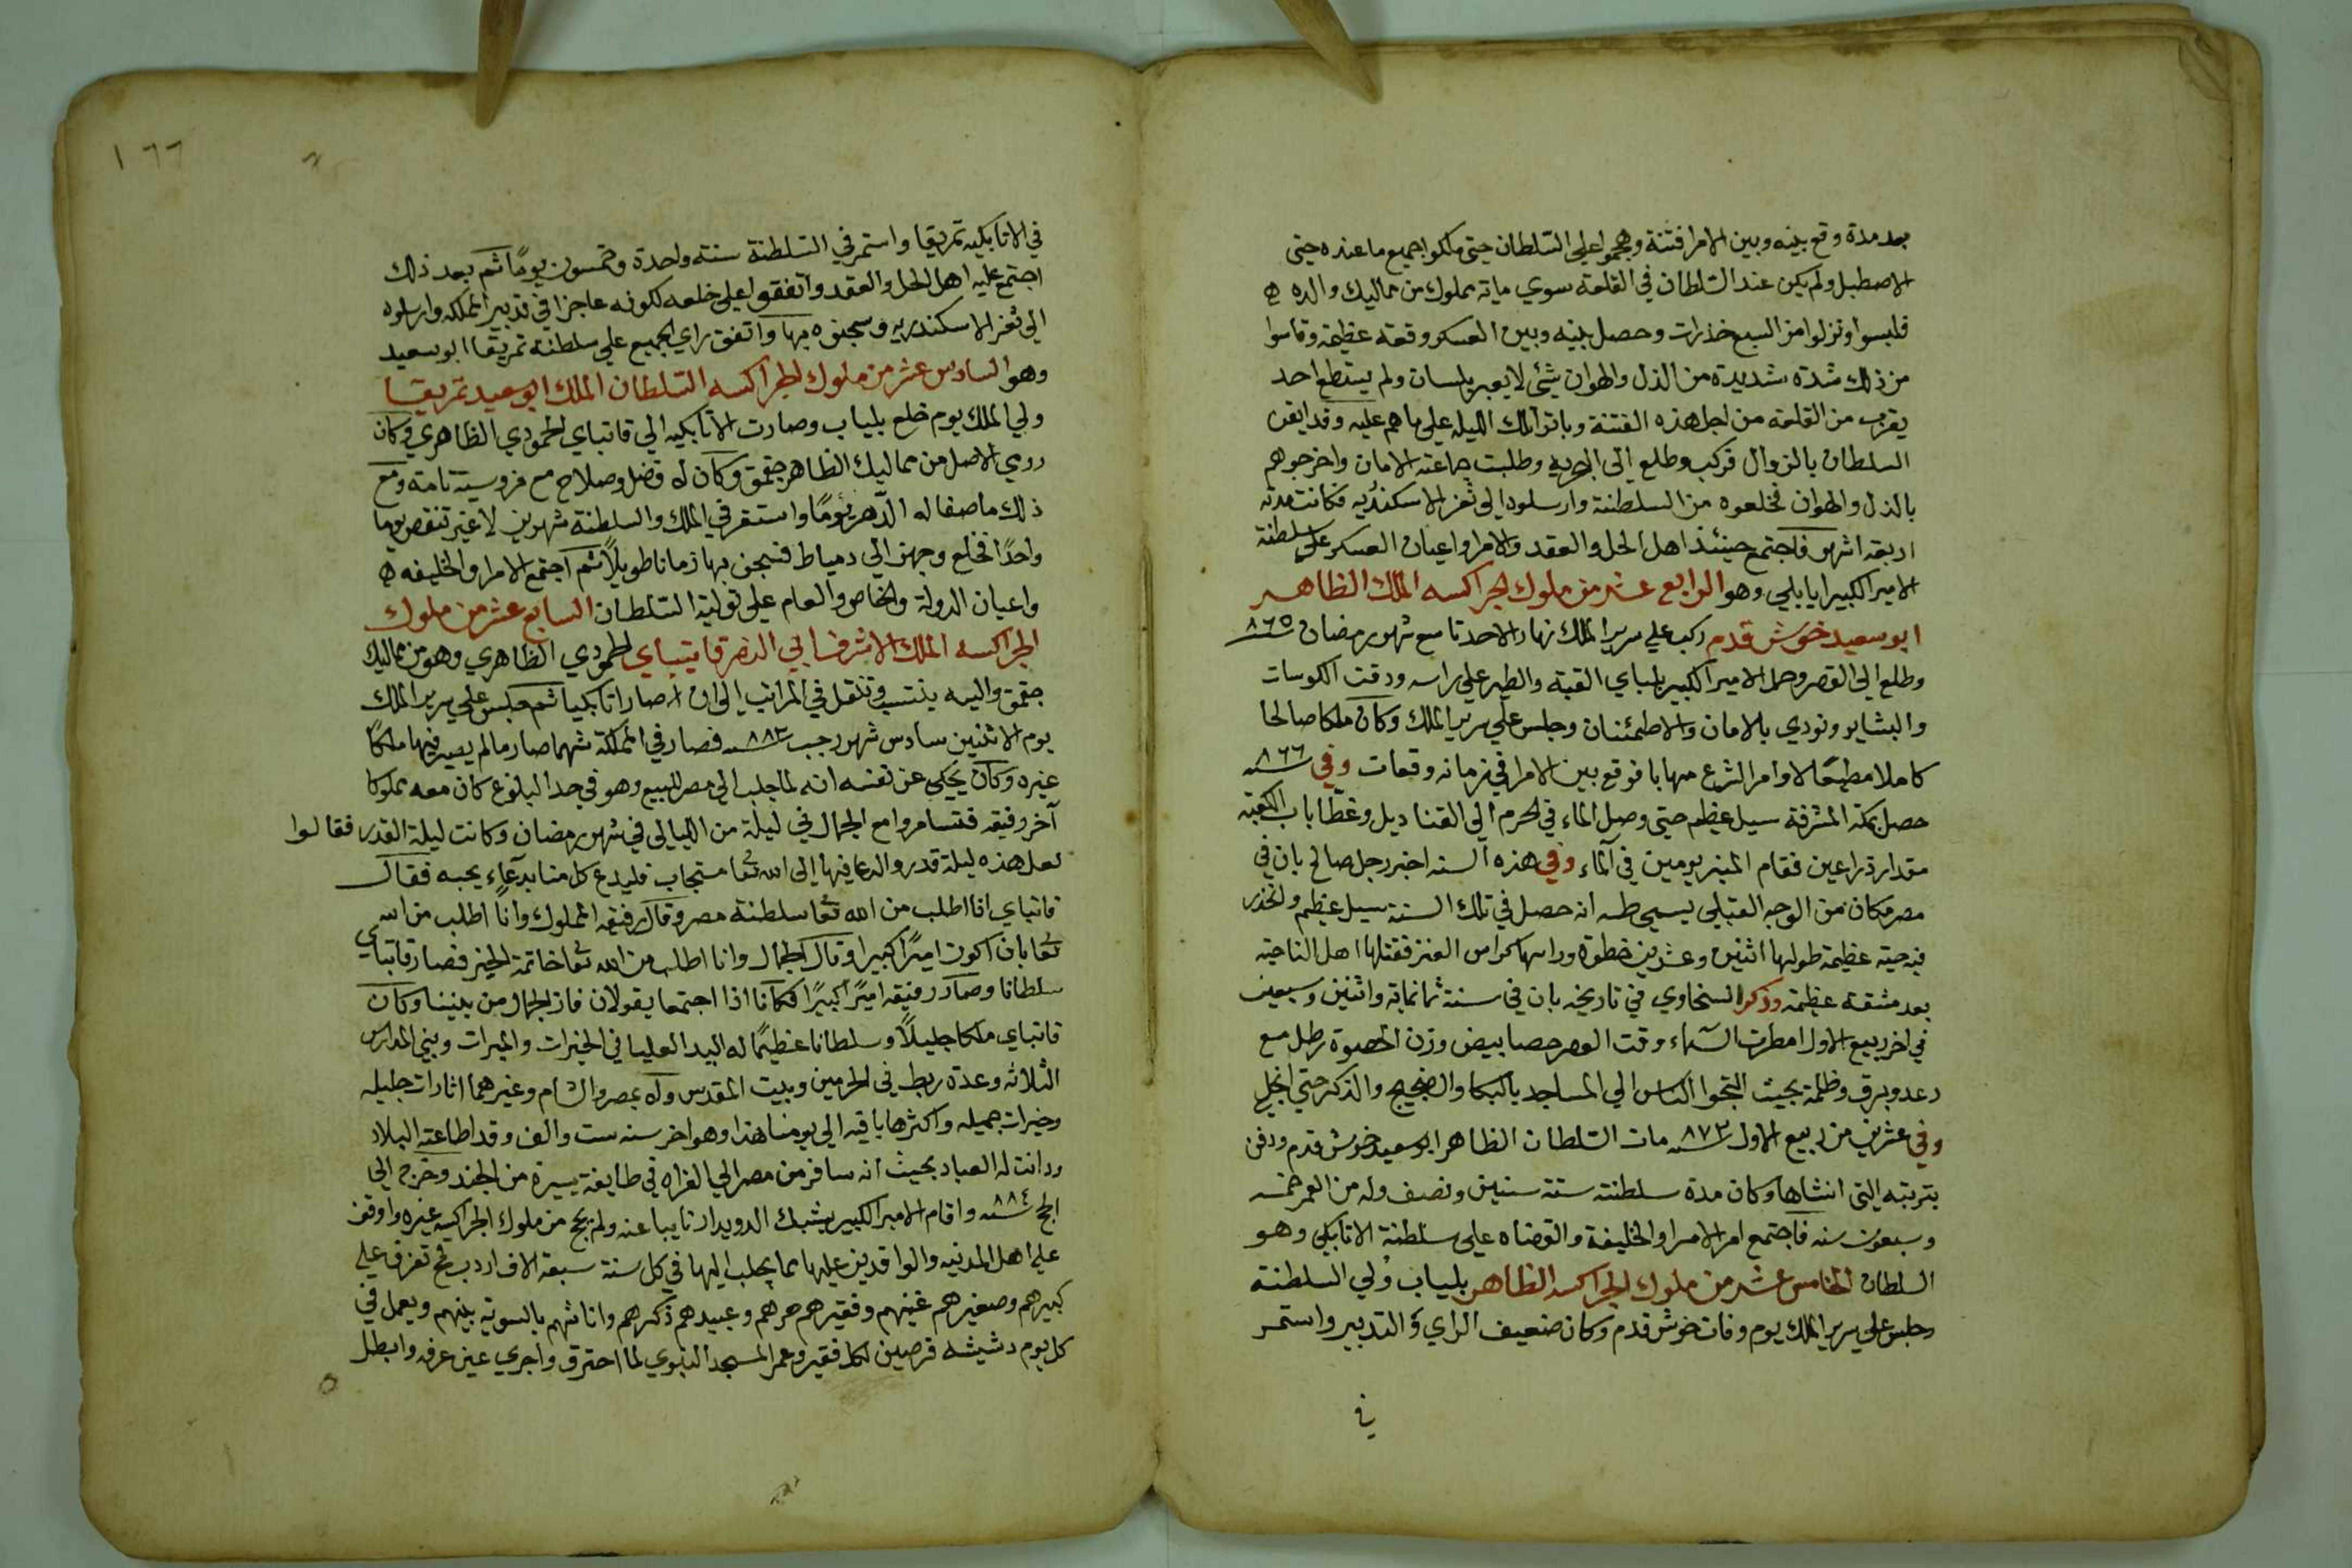 بعد مدة وقع بينه وبين الامرا فتنة وهجموا على السلطان حتى ملكوا جميع ما عنده حتى
الاصطبل ولم يكن عند السلطان في القلعة سوي ماية مملوك من مماليك والده
فلبسوا ونزلوا من السبع خدرات وحصل بينه وبين العسكر وقعة عظيمة وقاسوا
من ذلك شدة شديدة من الذل والهوان شيئ لا يعبر بلسان ولم يستطع احد
يقرب من القلعة من اجل هذه الفتنة وباتوا تلك الليلة علي ما هم عليه وقد ايقن
السلطان بالزوال فركب وطلع الى البحرية وطلبت جماعته الامان واخرجوهم
بالذل والهوان فخلعوه من السلطنة وارسلوه الى ثغر الاسكندريه فكانت مدته
اربعة اشهر فاجتمع حينئذ اهل الحل والعقد والامرا واعيان العسكر على سلطنة
الامير الكبير ايابلي وهو الرابع عشر من ملوك الجراكسه الملك الظاهر
ابو سعيد خوش قدم ركب علي سرير الملك نهار الاحد تاسع شهر رمضان سنة ٨٦٥
وطلع الي القصر وحمل الامير الكبير بلباي القبة والطير على راسه ودقت الكوسات
والبشاير ونودي بالامان والاطمئنان وجلس علي سرير الملك وكان ملكا صالحا
كاملا مطيعًا لاوامر الشرع مهابا فوقع بين الامرا في زمانه وقعات وفي سنة ٨٦٦
حصل بمكة المشرفة سيل عظيم حتى وصل الماء في الحرم الي القناديل وغطا باب الكعبة
مقدار ذراعين فقام المنبر يومين في الماء وفي هذه السنه اخبر رجل صالح بان في
مصر مكان من الوجه القبلي يسمى طسه انه حصل في تلك السنة سيل عظيم وانحدر
فيه حية عظيمة طولها اثنين وعشرين خطوة وراسها كراس العنز فقتلها اهل الناحية
بعد مشقة عظيمة وذكر السخاوي في تاريخه بان في سنة ثمانماية واثنين وسبعين
في اخر ربيع الاول امطرت السماء وقت العصر حصا بيض وزن الحصوة رطل مع
رعد وبرق وظلمة بحيث التجوا الناس الي المساجد بالبكا والضجيج والذكر حتي انجلي
وفي عشرين من ربيع الاول سنة ٨٧٣ مات السلطان الظاهر ابو سعيد خوش قدم ودفن
بتربته التي انشاها وكان مدة سلطنته ستة سنين ونصف وله من العمر خمسه
وسبعون سنه فاجتمع امر الامرا والخليفة والقضاه علي سلطنة الاتابكي وهو
السلطان الخامس عشر من ملوك الجراكسه الظاهر بلباب ولي السلطنة
وجلس علي سرير الملك يوم وفات خوش قدم وكان ضعيف الراي والتدبير واستمر
في
١٦٦
في الاتابكيه تمربقا واستمر في السلطنة سنة واحدة وخمسون يومًا ثم بعد ذلك
اجتمع عليه اهل الحل والعقد واتفقوا على خلعه لكونه عاجزا في تدبير المملكه وارسلوه
الي ثغر الاسكندريه وسجنوه بها واتفق راي الجميع علي سلطنة تمربقا ابو سعيد
وهو السادس عشر من ملوك الجراكسه السلطان الملك ابو سعيد تمربقا
ولي الملك يوم خلع بلباب وصارت الاتابكيه الي قاتباي المحمودي الظاهري وكان
رومي الاصل من مماليك الظاهر جقمق وكان له فضل وصلاح مع فروسية تامة ومع
ذلك ما صفا له الدهر يومًا واستقر في الملك والسلطنة شهرين لا غير تنقص يوما
واحدًا فخلع وجهز الي دمياط فسجن بها زمانا طويلاً ثم اجتمع الامرا والخليفه
واعيان الدولة والخاص والعام علي تولية السلطان السابع عشر من ملوك
الجراكسه الملك الاشرف ابي النصر قايتباي المحمودي الظاهري وهو من مماليك
جقمق واليه ينتسب وتنقل في المراتب الى ان صار اتابكيا ثم جلس علي سرير الملك
يوم الاثنين سادس شهر رجب سنة ٨٨٣ فصار في المملكة شهما صارما لم يصير فيها ملكًا
غيره وكان يحكى عن نفسه انه لما جلب الي مصر للبيع وهو في حد البلوغ كان معه مملوكا
آخر رفيقه فتسامروا مع الجمال في ليلة من الليالي في شهر رمضان وكانت ليلة القدر فقالوا
لعل هذه ليلة قدر والدعا فيها إلى الله تعا مستجاب فليدع كل منا بدعاء يحبه فقال
قاتباي انا اطلب من الله تعا سلطنة مصر وقال رفيقه المملوك وانا اطلب من الله
تعا بان اكون اميرًا كبيرا وقال الجمال وانا اطلب من الله تعا خاتمة الخير فصار قاتباي
سلطانا وصار رفيقه اميرًا كبيرًا فكانا اذا اجتمعا يقولان فاز الجمال من بيننا وكان
قاتباي ملكا جليلاً وسلطانا عظيمًا له اليد العليا في الخيرات والمبرات وبني المدارس
الثلاثه وعدة ربط في الحرمين وبيت المقدس وله بمصر والشام وغيرهما اثارات جليله
وخيرات جميله واكثرها باقيه الي يومنا هذا وهو اخر سنه ست والف وقد اطاعته البلاد
ودانت له العباد بحيث انه سافر من مصر الي الفراه في طايفة يسيرة من الجند وخرج الي
الحج سنة ٨٨٤ واقام الامير الكبير يشبك الدويدار نايبا عنه ولم يحج من ملوك الجراكسه غيره واوقف
علي اهل المدنيه والوافدين عليها مما يجلب اليها في كل سنة سبعة الاف اردب قمح تفرق على
كبيرهم وصغيرهم غنيهم وفقيرهم حرهم وعبيدهم ذكرهم واناثهم بالسوية بينهم ويعمل في
كل يوم دشيشه قرصين لكل فقير وعمر المسجد النبوي لما احترق واجري عين عرفه وابطل